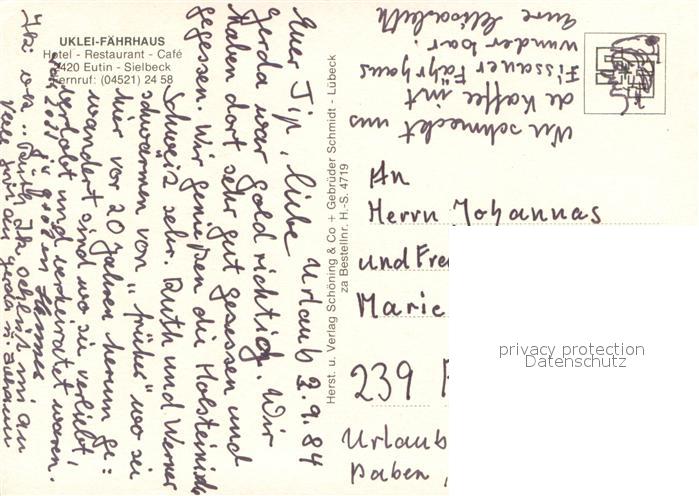 UKLEI-FÄHRHAUS
Hotel - Restaurant - Café
2420 Eutin - Sielbeck
Fernruf: (04521) 24 58
Urlaub 2.9.84
Euer Tip, liebe
Gerda war goldrichtig. Wir
haben dort sehr gut gesessen und
gegessen. Wir genießen die Holsteinische
Schweiz sehr. Ruth und Werner
schwärmen von "früher" wo sie
hier vor 20 Jahren herum ge=
wandert sind wo sie verliebt,
verlobt und verheiratet waren.
Nu schmeckt uns
de Kaffee int
Fissauer Fährhaus
wunderbar.
Herst. u. Verlag Schöning & Co + Gebrüder Schmidt - Lübeck
za Bestellnr. H.-S. 4719
An
Herrn Johannas
und
Marie
239
Urlaub
privacy protection
Datenschutz